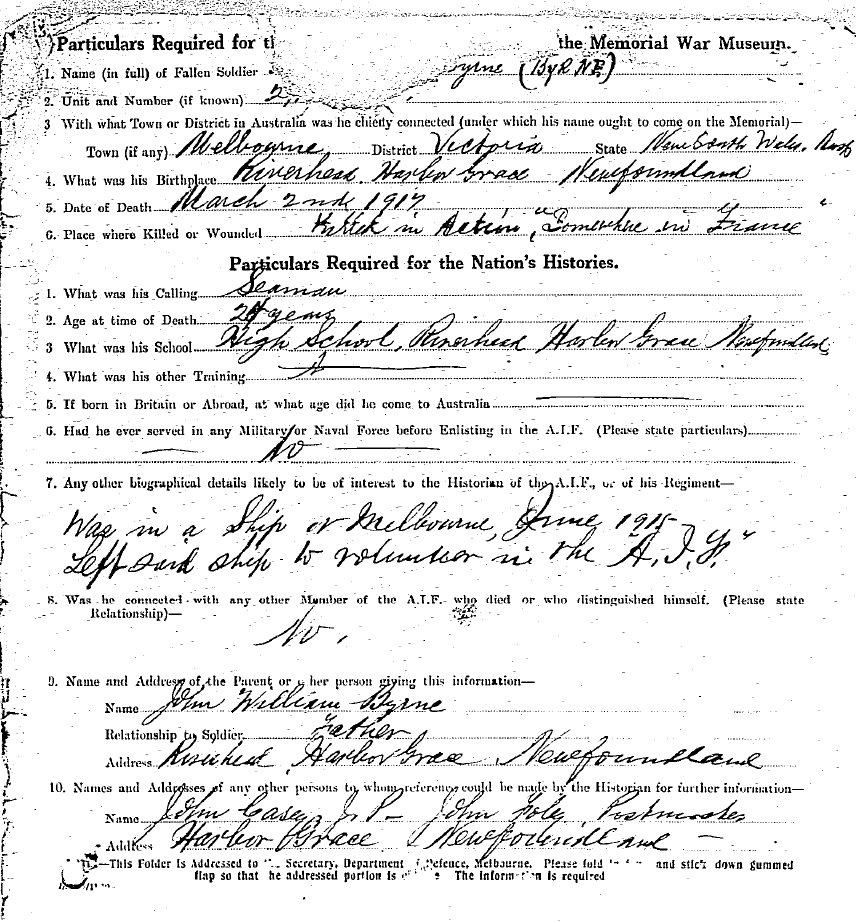 Particulars Required for the Memorial War Museum.
1. Name (in full) of Fallen Soldier yrne (ByRNE)
2. Unit and Number (if known)
3 With what Town or District in Australia was he chiefly connected (under which his name ought to come on the Memorial)—
Town (if any) Melbourne District Victoria State New South Wales.
4. What was his Birthplace Riverhead. Harbor Grace Newfoundland
5. Date of Death March 2nd 1917
6. Place where Killed or Wounded Killed in Action, "Somewhere in France"
Particulars Required for the Nation's Histories.
1. What was his Calling Seaman
2. Age at time of Death years
3 What was his School High School, Riverhead Harbor Grace Newfoundland
4. What was his other Training
5. If born in Britain or Abroad, at what age did he come to Australia
6. Had he ever served in any Military or Naval Force before Enlisting in the A.I.F. (Please state particulars)
No
7. Any other biographical details likely to be of interest to the Historian of the A.I.F., or of his Regiment—
Was in a Ship at Melbourne, June 1915
Left said ship to volunteer in the "A.I.F."
8. Was he connected with any other Member of the A.I.F. who died or who distinguished himself. (Please state
Relationship)—
No.
9. Name and Address of the Parent or her person giving this information—
Name John William Byrne
Relationship to Soldier Father
Address Riverhead, Harbor Grace, Newfoundland
10. Names and Addresses of any other persons to whom reference could be made by the Historian for further information—
Name John Casey J.P— John Foley Postmaster
Address Harbor Grace Newfoundland —
—This Folder is Addressed to Secretary, Department of Defence, Melbourne. Please fold and stick down gummed
flap so that he addressed portion is The information is required